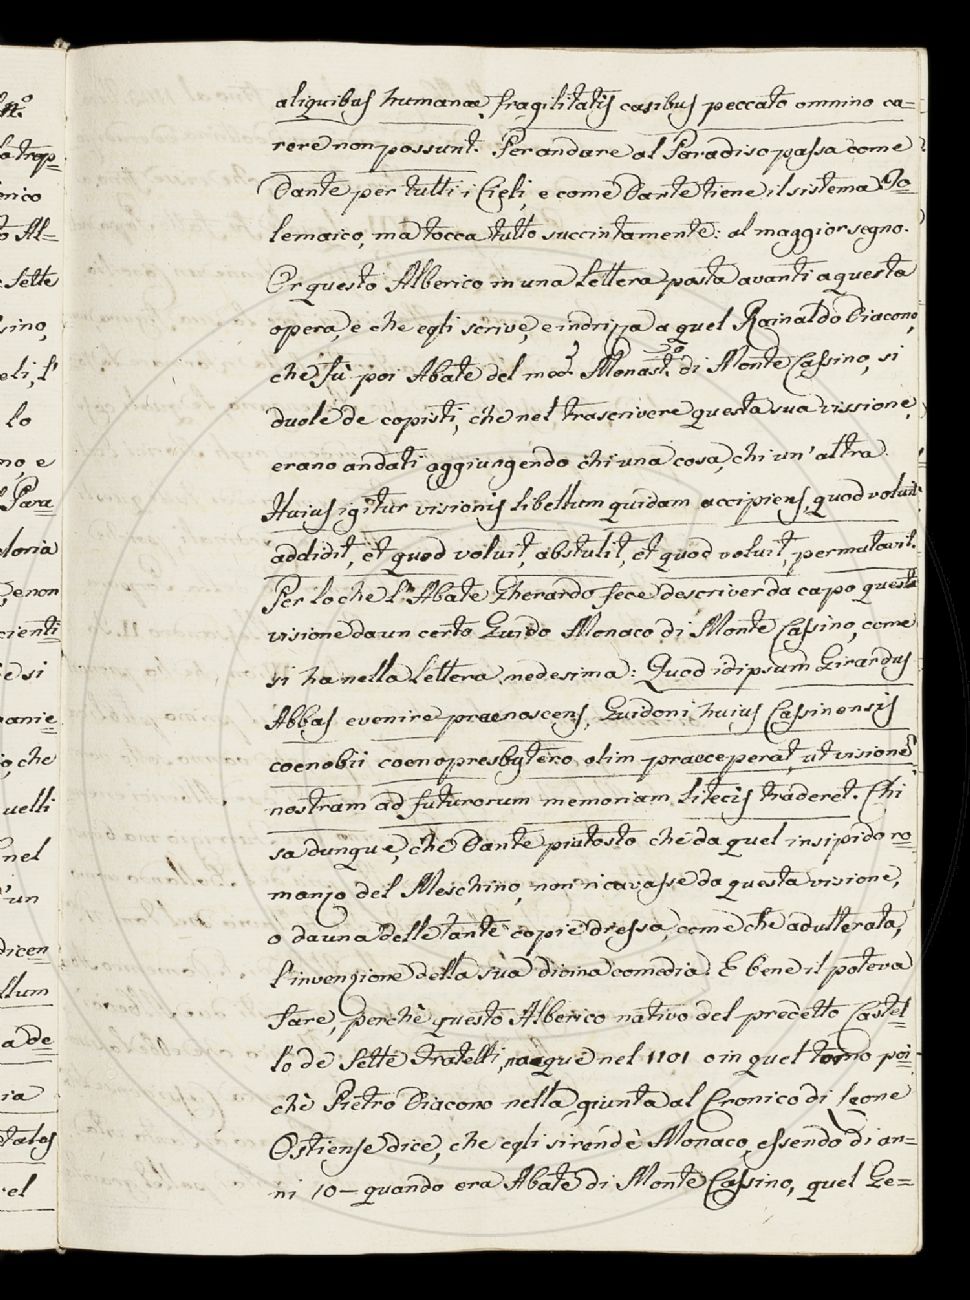 aliquibus humanae fragilitatis casibus peccato omnino ca=
rere non possunt. Per andare al Paradiso passa come
Dante per tutti i Cieli, e come Dante tiene il sistema To=
lemaico, ma tocca tutto succintamente: al maggior segno.
Or questo Alberico in una lettera posta avanti a questa
opera, e che egli scrive, e indrizza a quel Rainaldo Diacono,
che fù poi Abate del med.º Monast.º di Monte Cassino, si
duole de copisti, che nel trascrivere questa sua vissione,
erano andati aggiungendo chi una cosa, chi un' altra.
Huius igitur visionis libellum quidam accipiens, quod voluit
addidit, et quod voluit, abstulit, et quod voluit, permutavit.
Per lo che l' Abate Gherardo fece descriver da capo questa
visione da un certo Guido Monaco di Monte Cassino, come
si ha nella lettera medesima: Quod idipsum Girardus
Abbas evenire praenoscens, Guidoni huius Cassinensis
coenobii coenopresbytero olim praeceperat, ut visionem
nostram ad futurorum memoriam litecis traderet. Chi
sa dunque, che Dante piutosto che da quel insipido ro=
manzo del Meschino, non ricavasse da questa visione,
o da una delle tante copie d'essa, come che adulterata,
l'invenzione della sua divina comedia. E bene il poteva
fare, perchè questo Alberico nativo del predetto Castel=
lo de Sette Fratelli, nacque nel 1101 o in quel torno poi=
chè Pietro Diacono nella giunta al Cronico di Leone
Ostiense dice, che egli si rendè Monaco, essendo di an=
ni 10 – quando era Abate di Monte Cassino, quel Ge=